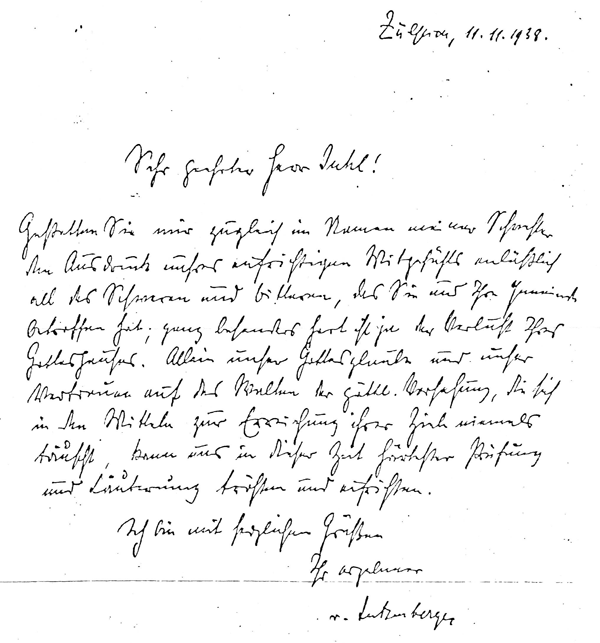 Zülpich, 11.11.1938.
Sehr geehrter Herr Juhl!
Gestatten Sie mir zugleich im Namen meiner Schwester
den Ausdruck unsres aufrichtigen Mitgefühls anläßlich
all des Schweren und bitteren, das Sie und Ihre Gemeinde
betroffen hat; ganz besonders hart ist ja der Verlust Ihres
Gotteshauses. Allein unser Gottesglaube und unser
Vertrauen auf das Walten der göttl. Vorsehung, die sich
in den Mitteln zur Erreichung ihrer Ziele niemals
täuscht, kann uns in dieser Zeit härtester Prüfung
und Läuterung trösten und aufrichten.
Ich bin mit herzlichen Grüßen
Ihr ergebener
v.